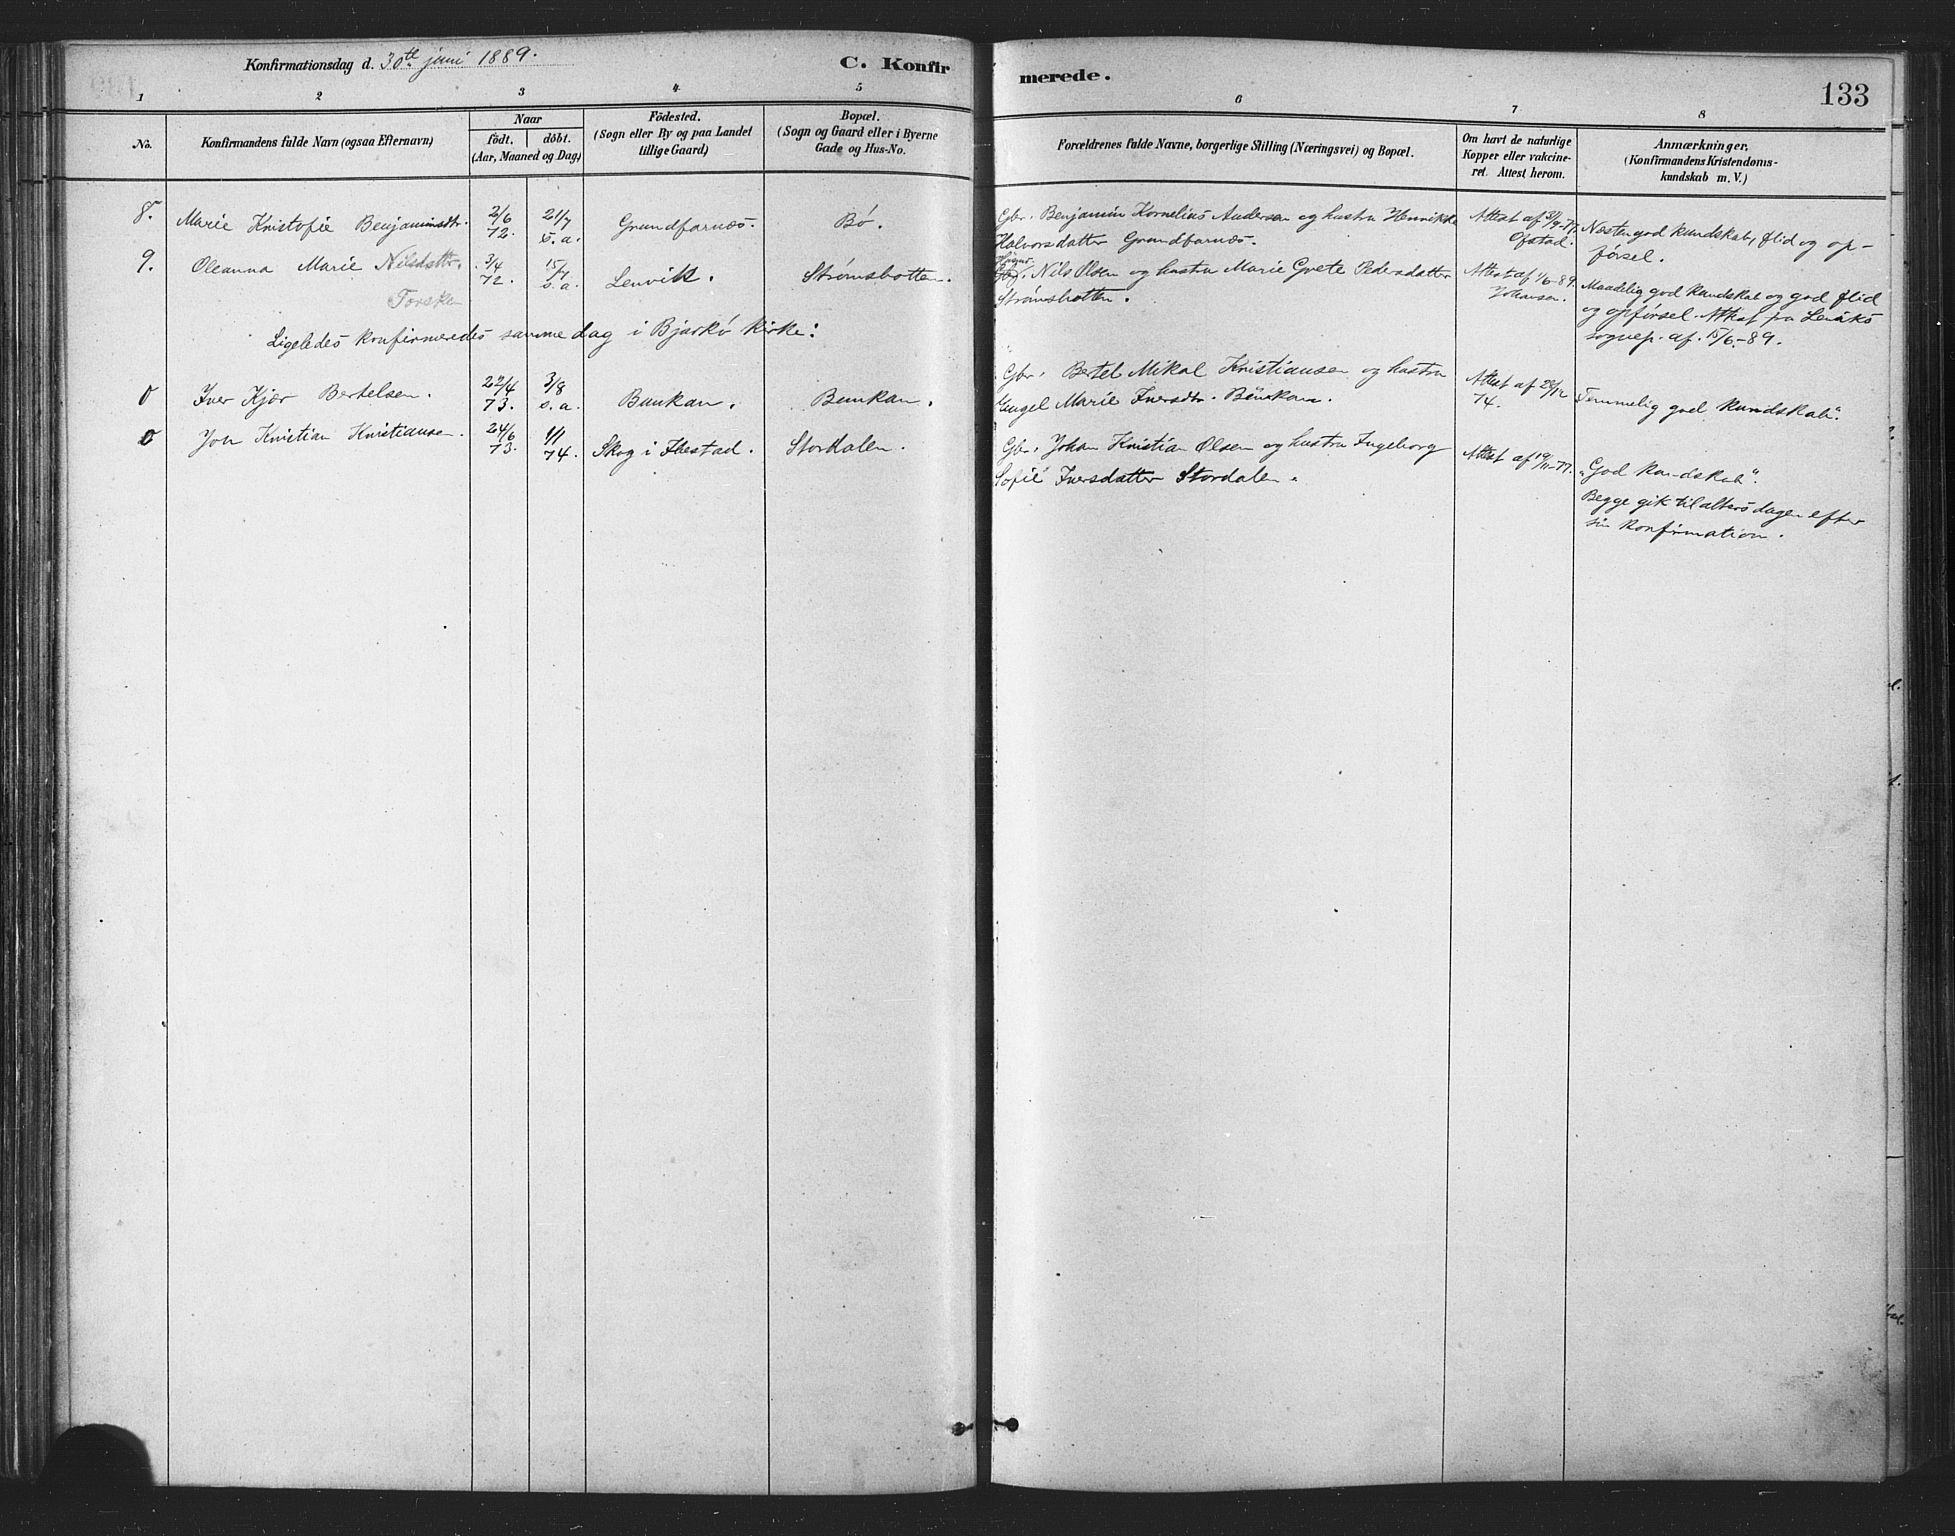 Konfirmationsdag d. 30te juni 1889.
C. Konfir
merede.
133
1 2 3 4 5 6 7 8
No.
Konfirmandens fulde Navn (ogsaa Efternavn)
Naar
födt. döbt.
(Aar, Maaned og Dag)
Födested.
(Sogn eller By og paa Landet
tillige Gaard)
Bopæl.
(Sogn og Gaard eller i Byerne
Gade og Hus-No.
Forældrenes fulde Navne, borgerlige Stilling (Næringsvei) og Bopæl.
Om havt de naturlige
Kopper eller vakcine-
ret. Attest herom.
Anmærkninger,
(Konfirmandens Kristendoms-
kundskab m. V.)
8. Marie Kristofie Benjaminsdtr. 2/6 72. 21/7 s. a. Grundfarnæs. Bø.
Gbr. Benjamin Kornelius Andersen og hustru Henrikke
Halvorsdatter Grundfarnæs.
Attest af 3/9-77.
Ofstad.
Nesten god kundskab, flid og op-
førsel.
9. Oleanna Marie Nilsdatter. 3/4 72. 15/7 s. a. Lenvik. Strømsbotten.
Forsken
Nils Olsen og hustru Marie Grete Pedersdatter
Strømsbotten.
Attest af 1/6-89.
Johansen.
Maadelig god kundskab og god flid
og opførsel. Attest fra Lenviks
sognep. af 15/6-89.
Ligeledes konfirmeredes samme dag i Bjarkø kirke:
0 Iver Kjær Bertelsen. 22/4 73. 3/8 s. a. Bunkan. Bunkan.
Gbr. Bertel Mikal Kristiansen og hustru
Engel Marie Iversdtr. Bunkan.
Attest af 28/12
74.
Temmelig god kundskab".
0 Joh Kristian Kristiansen. 24/6 73. 1/1 74. Skog i Ibestad. Stordalen.
Gbr. Johan Kristian Olsen og hustru Ingeborg
Sofie Iversdatter Stordalen.
Attest af 19/11-77.
"God kundskab".
Begge gik til alters dagen efter
sin konfirmation.